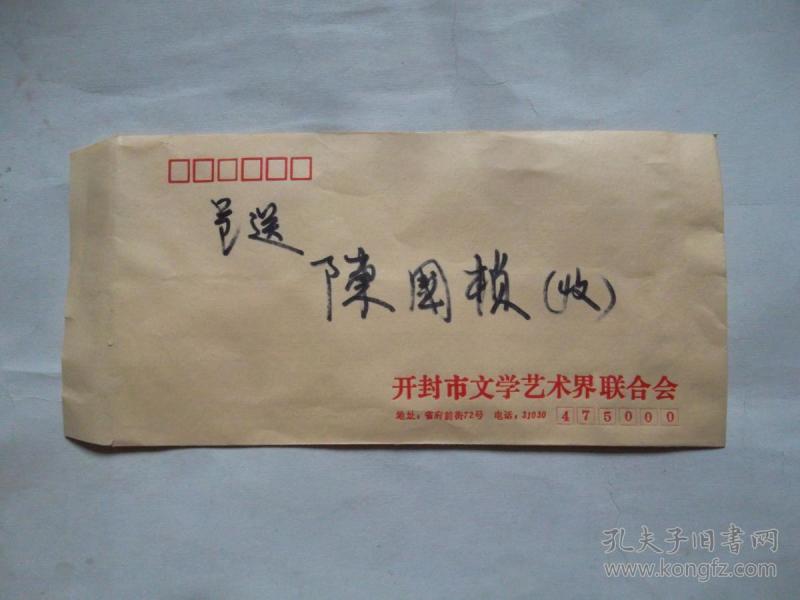 呈送
陳國楨(收)
开封市文学艺术界联合会
地址：省府前街72号 电话：31030 475000
孔夫子旧书网
www.kongfz.com